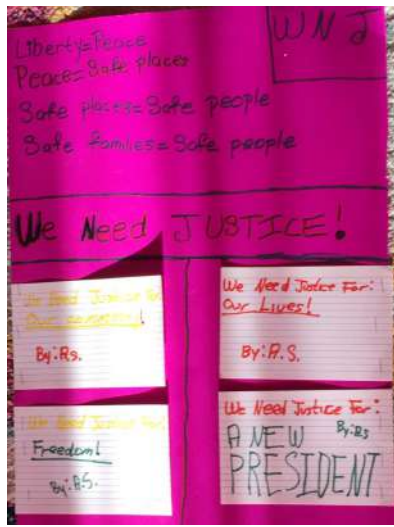 WNJ
Liberty=Peace
Peace=Safe places
Safe places=Safe people
Safe families=Safe people
We Need JUSTICE!
We Need Justice For:
Our community!
By:A.S.
We Need Justice For:
Our Lives!
By:A.S.
We Need Justice For:
Freedom!
By:A.S.
We Need Justice For:
A NEW
By:AS
PRESIDENT